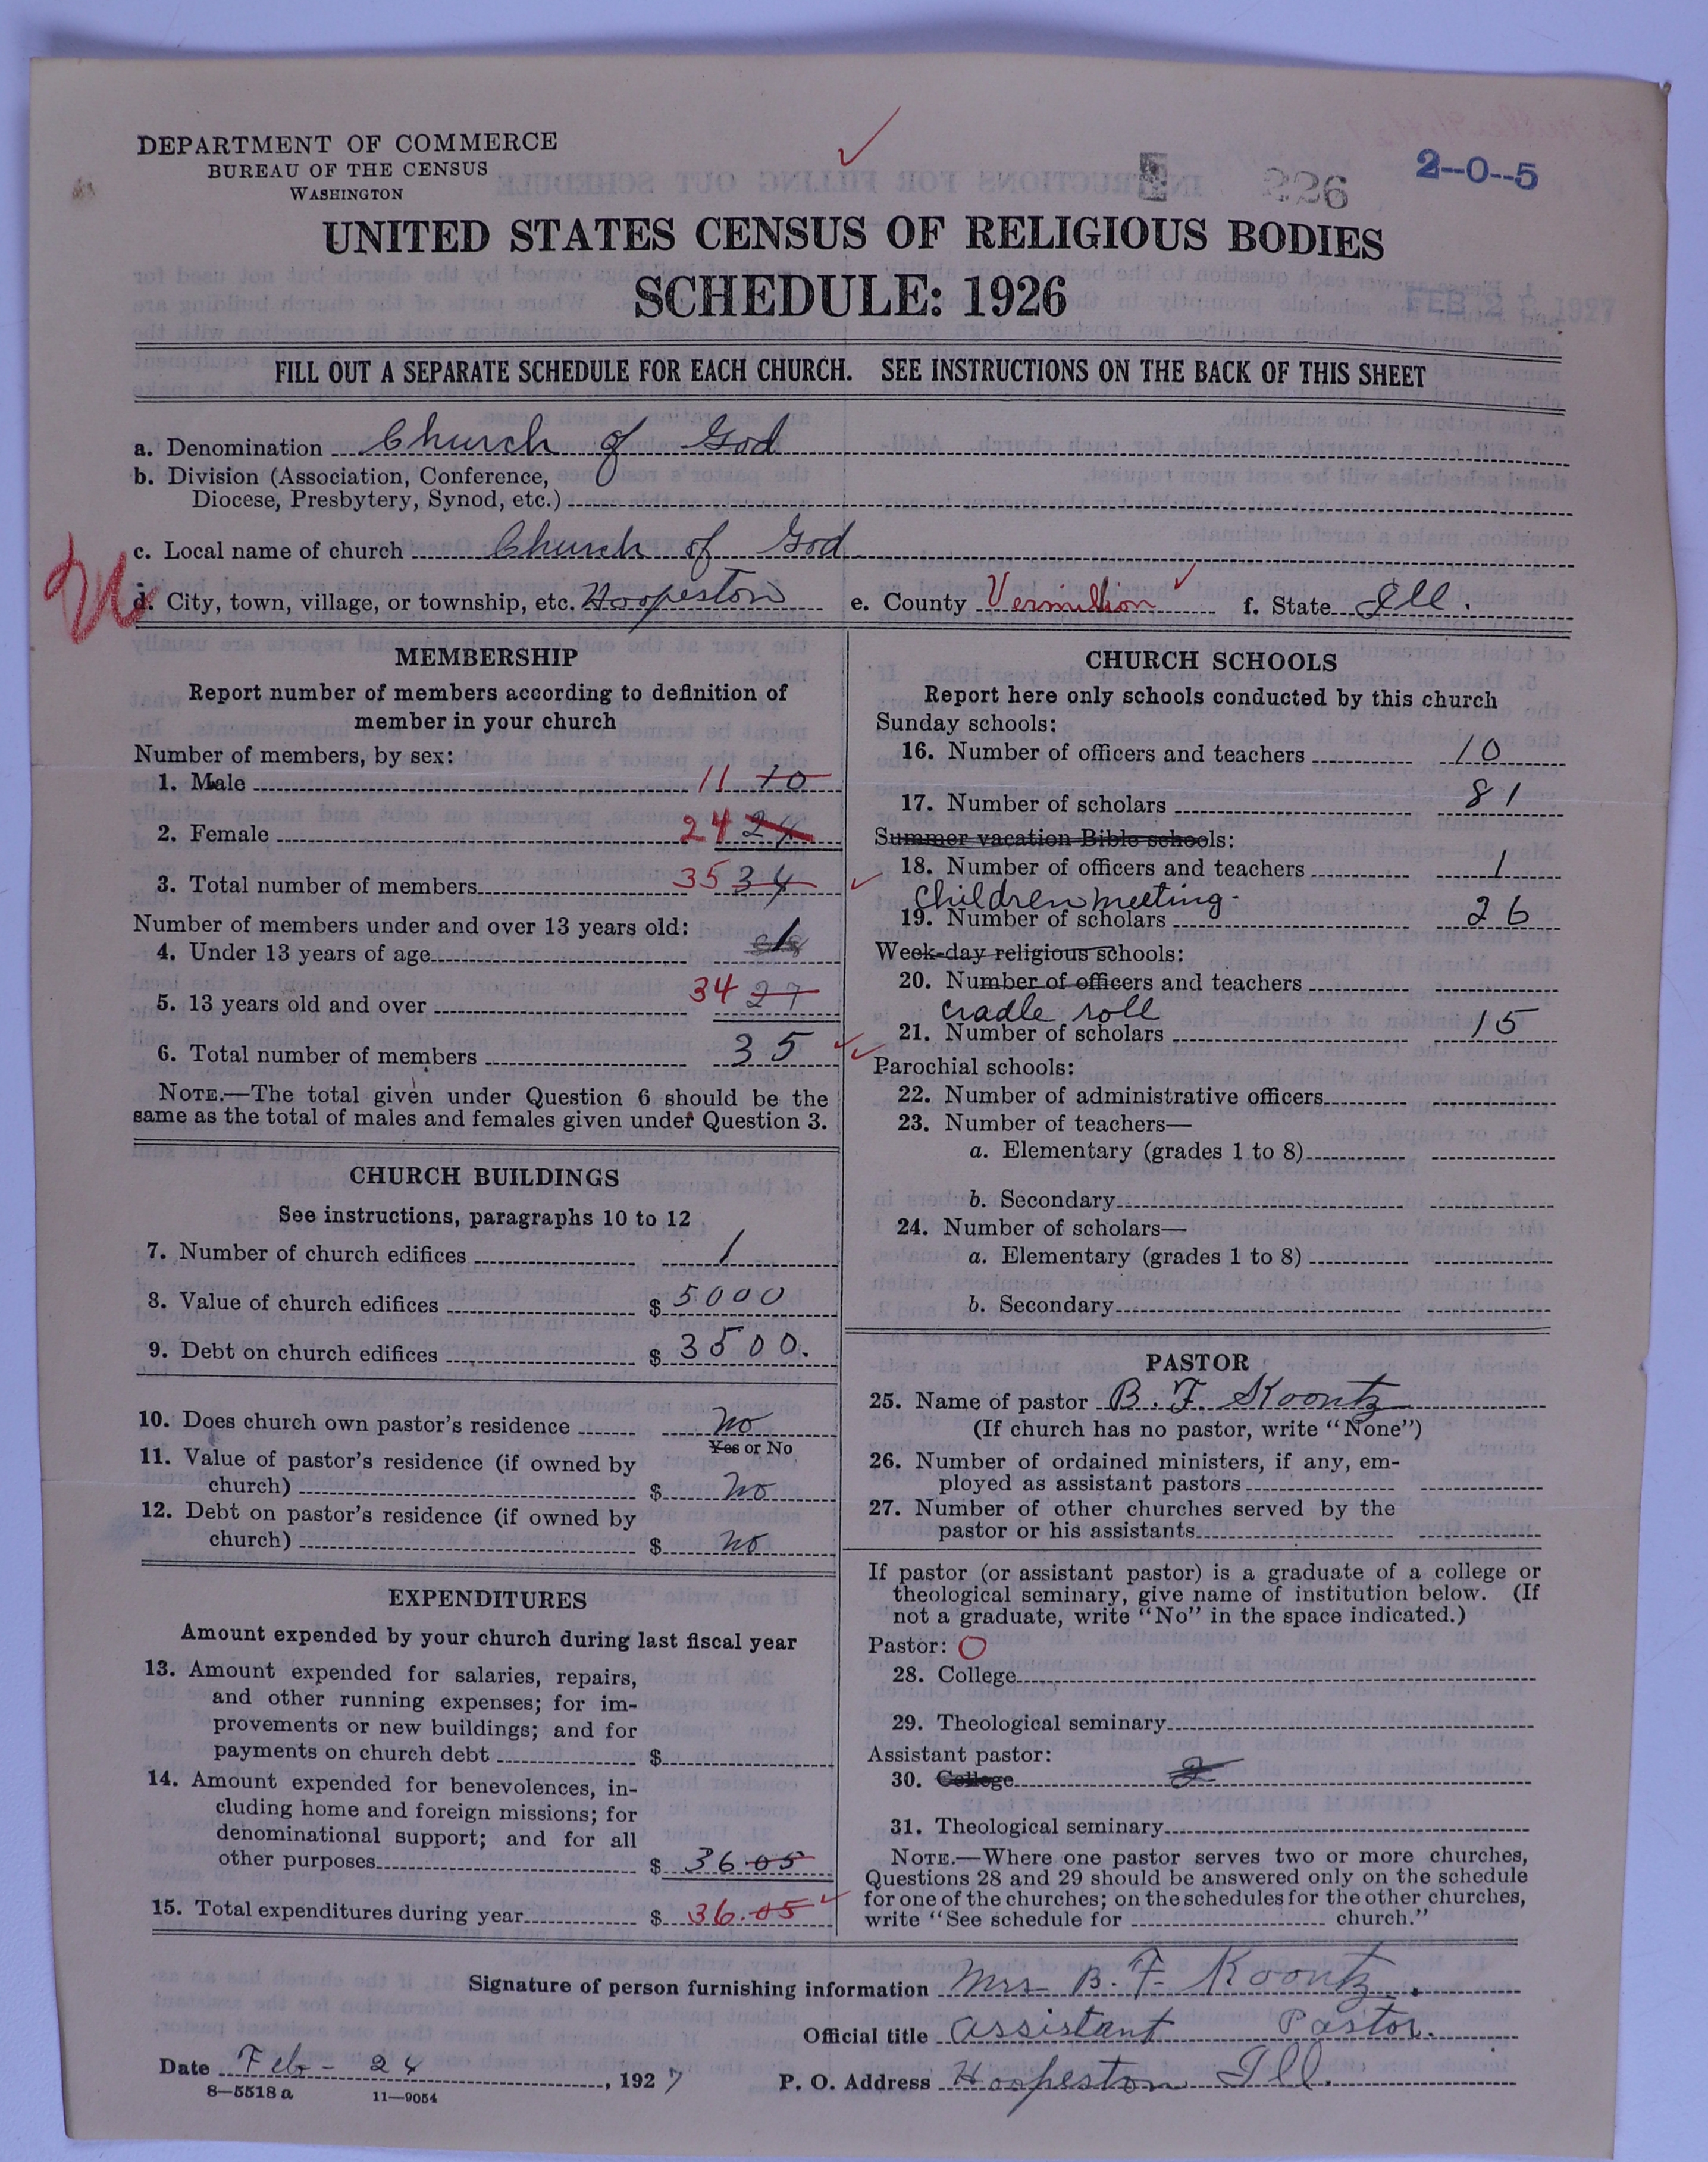 DEPARTMENT OF COMMERCE
BUREAU OF THE CENSUS
WASHINGTON
226
2--0--5
UNITED STATES CENSUS OF RELIGIOUS BODIES
SCHEDULE: 1926
FEB 2 1927
FILL OUT A SEPARATE SCHEDULE FOR EACH CHURCH. SEE INSTRUCTIONS ON THE BACK OF THIS SHEET
a. Denomination Church of God
b. Division (Association, Conference,
Diocese, Presbytery, Synod, etc.)
c. Local name of church Church of God
d. City, town, village, or township, etc. Hoopeston e. County Vermillion f. State Ill.
MEMBERSHIP
Report number of members according to definition of
member in your church
Number of members, by sex:
1. Male 11 10
2. Female 24 24
3. Total number of members 35 34
Number of members under and over 13 years old:
4. Under 13 years of age 1
5. 13 years old and over 34 27
6. Total number of members 35
NOTE.—The total given under Question 6 should be the
same as the total of males and females given under Question 3.
CHURCH BUILDINGS
See instructions, paragraphs 10 to 12
7. Number of church edifices 1
8. Value of church edifices $ 5000
9. Debt on church edifices $ 3500.
10. Does church own pastor's residence No
Yes or No
11. Value of pastor's residence (if owned by
church) $ No
12. Debt on pastor's residence (if owned by
church) $ No
EXPENDITURES
Amount expended by your church during last fiscal year
13. Amount expended for salaries, repairs,
and other running expenses; for im-
provements or new buildings; and for
payments on church debt $
14. Amount expended for benevolences, in-
cluding home and foreign missions; for
denominational support; and for all
other purposes $ 36.05
15. Total expenditures during year $ 36.05
CHURCH SCHOOLS
Report here only schools conducted by this church
Sunday schools:
16. Number of officers and teachers 10
17. Number of scholars 81
Summer vacation Bible schools:
18. Number of officers and teachers 1
Children meeting-
19. Number of scholars 26
Week-day religious schools:
20. Number of officers and teachers
Cradle roll
21. Number of scholars 15
Parochial schools:
22. Number of administrative officers
23. Number of teachers—
a. Elementary (grades 1 to 8)
b. Secondary
24. Number of scholars—
a. Elementary (grades 1 to 8)
b. Secondary
PASTOR
25. Name of pastor B. F. Koontz
(If church has no pastor, write "None")
26. Number of ordained ministers, if any, em-
ployed as assistant pastors
27. Number of other churches served by the
pastor or his assistants
If pastor (or assistant pastor) is a graduate of a college or
theological seminary, give name of institution below. (If
not a graduate, write "No" in the space indicated.)
Pastor: O
28. College
29. Theological seminary
Assistant pastor:
30. College 2
31. Theological seminary
NOTE.—Where one pastor serves two or more churches,
Questions 28 and 29 should be answered only on the schedule
for one of the churches; on the schedules for the other churches,
write "See schedule for church."
Signature of person furnishing information Mrs B. F. Koontz.
Official title Assistant Pastor.
Date Feb - 24, 1927 P. O. Address Hoopeston Ill.
8—5518 a 11—9054